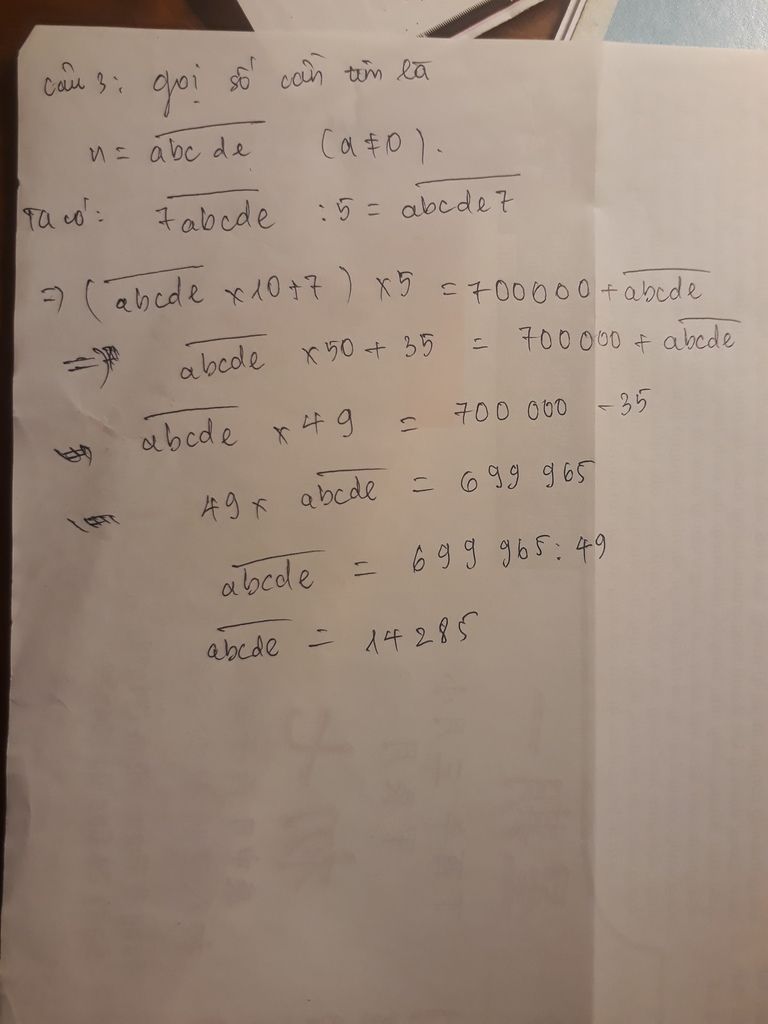 Câu 3: gọi số cần tìm là
n = abcde (a ≠ 0).
Ta có: 7abcde : 5 = abcde7
=> (abcde x 10 + 7) x 5 = 700000 + abcde
=> abcde x 50 + 35 = 700 000 + abcde
abcde x 49 = 700 000 - 35
49 x abcde = 699 965
abcde = 699 965 : 49
abcde = 14285